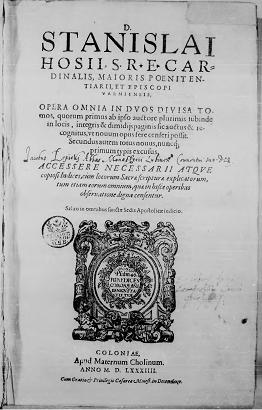 D.
STANISLAI
HOSII. S. R. E. CAR-
DINALIS, MAIORIS POENITEN-
TIARII, ET EPISCOPI
VARMIENSIS,
OPERA OMNIA IN DVOS DIVISA TO-
mos, quorum primus ab ipso auctore plurimis subinde
in locis, integris & dimidiis paginis sic auctus & re-
cognitus, vt nouum opus ferè censeri possit.
Secundus autem totus nouus, nuncq́;
primum typis excusus.
ACCESSERE NECESSARII ATQVE
copiosi Indices, tùm locorum Sacræ scripturæ explicatorum,
tum etiam eorum omnium, quæ in hisce operibus
obseruatione digna censentur.
Saluo in omnibus sanctæ Sedis Apostolicæ iudicio.
BENEDICES
COLONIAE,
Apud Maternum Cholinum.
ANNO M. D. LXXXIIII.
Cum Gratia & Priuilegio Cæsareæ Maiest. in Decennium.